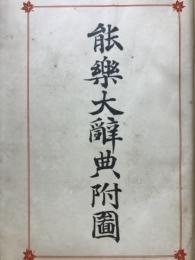 能樂大辭典附圖